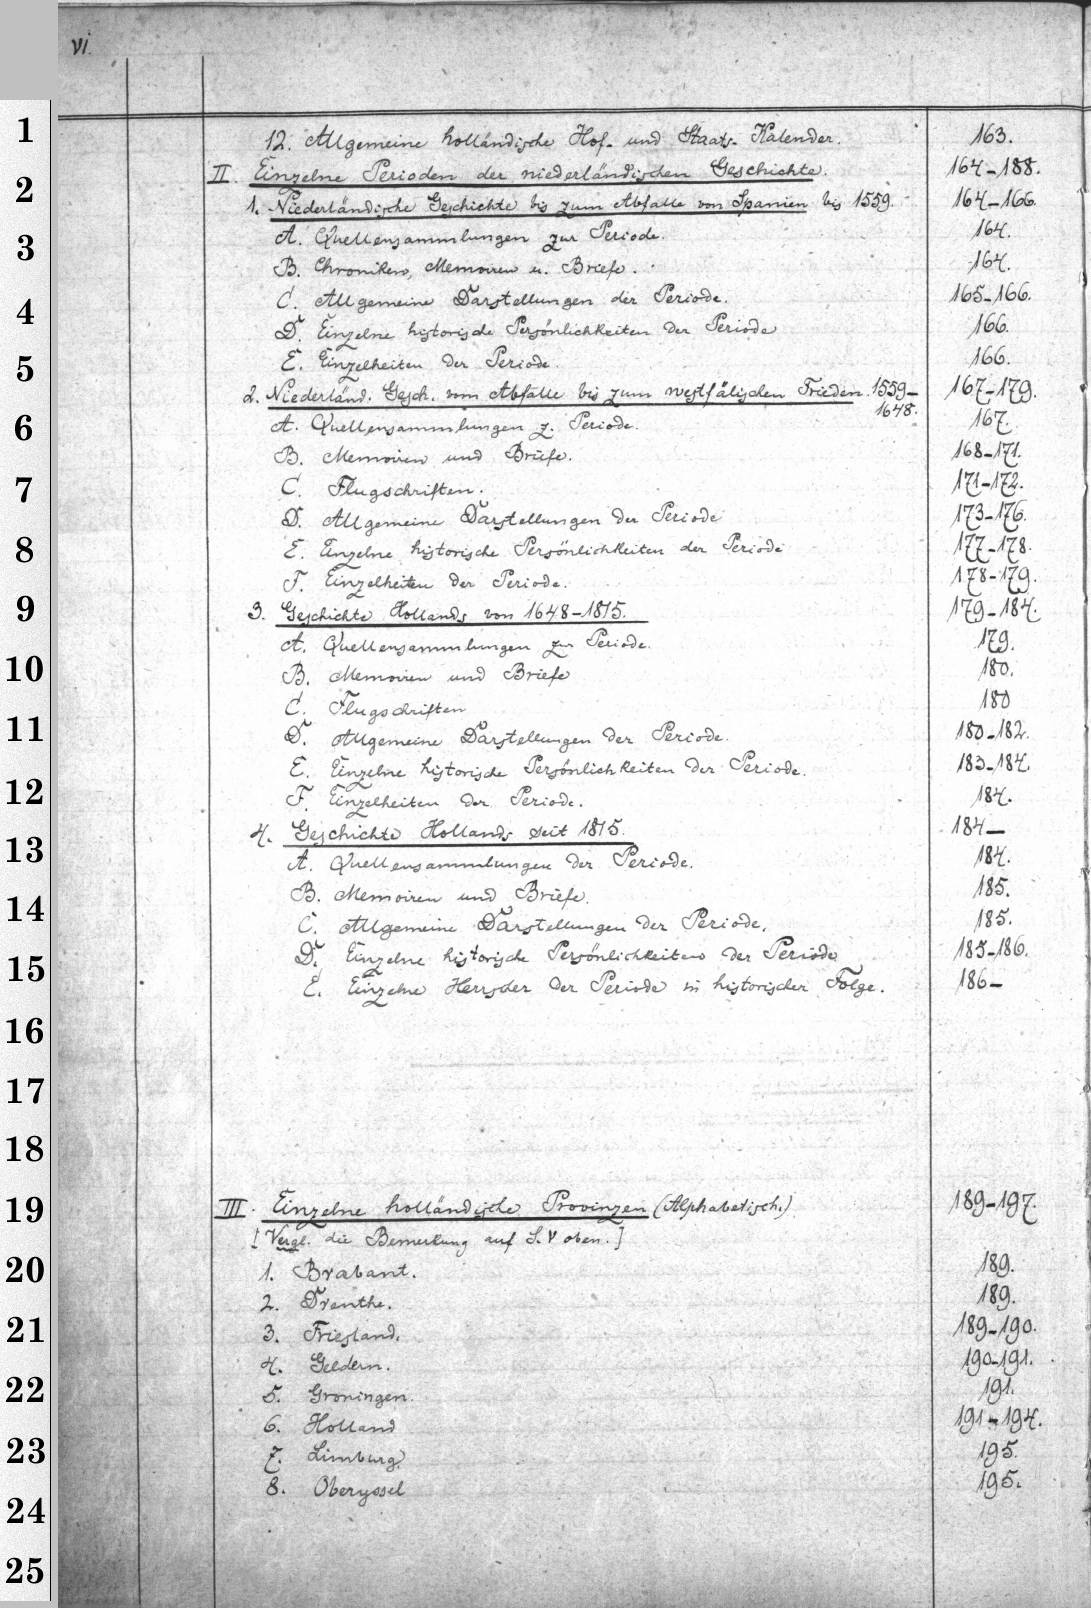 vi.
12. Allgemeine holländische Hof- und Staats-Kalender. 163.
II. Einzelne Perioden der niederländischen Geschichte. 164-188.
1. Niederländische Geschichte bis zum Abfalle von Spanien bis 1559. 164-166.
A. Quellensammlungen zur Periode. 164.
B. Chroniken, Memoiren u. Briefe. 164.
C. Allgemeine Darstellungen der Periode. 165-166.
D. Einzelne historische Persönlichkeiten der Periode 166.
E. Einzelheiten der Periode. 166.
2. Niederländ. Gesch. vom Abfalle bis zum westfälischen Frieden. 1559- 167-179.
1648.
A. Quellensammlungen z. Periode. 167.
B. Memoiren und Briefe. 168-171.
C. Flugschriften. 171-172.
D. Allgemeine Darstellungen der Periode 173-176.
E. Einzelne historische Persönlichkeiten der Periode 177-178.
F. Einzelheiten der Periode. 178-179.
3. Geschichte Hollands von 1648-1815. 179-184.
A. Quellensammlungen zur Periode. 179.
B. Memoiren und Briefe 180.
C. Flugschriften 180
D. Allgemeine Darstellungen der Periode. 180-182.
E. Einzelne historische Persönlichkeiten der Periode. 183-184.
F. Einzelheiten der Periode. 184.
4. Geschichte Hollands seit 1815. 184-
A. Quellensammlungen der Periode. 184.
B. Memoiren und Briefe. 185.
C. Allgemeine Darstellungen der Periode. 185.
D. Einzelne historische Persönlichkeiten der Periode 185-186.
E. Einzelne Herrscher der Periode in historischer Folge. 186-
III. Einzelne holländische Provinzen (Alphabetisch.) 189-197.
[Vergl. die Bemerkung auf S. V oben.]
1. Brabant. 189.
2. Drenthe. 189.
3. Friesland. 189-190.
4. Geldern. 190-191.
5. Groningen. 191.
6. Holland 191-194.
7. Limburg. 195.
8. Oberyssel 195.
1
2
3
4
5
6
7
8
9
10
11
12
13
14
15
16
17
18
19
20
21
22
23
24
25